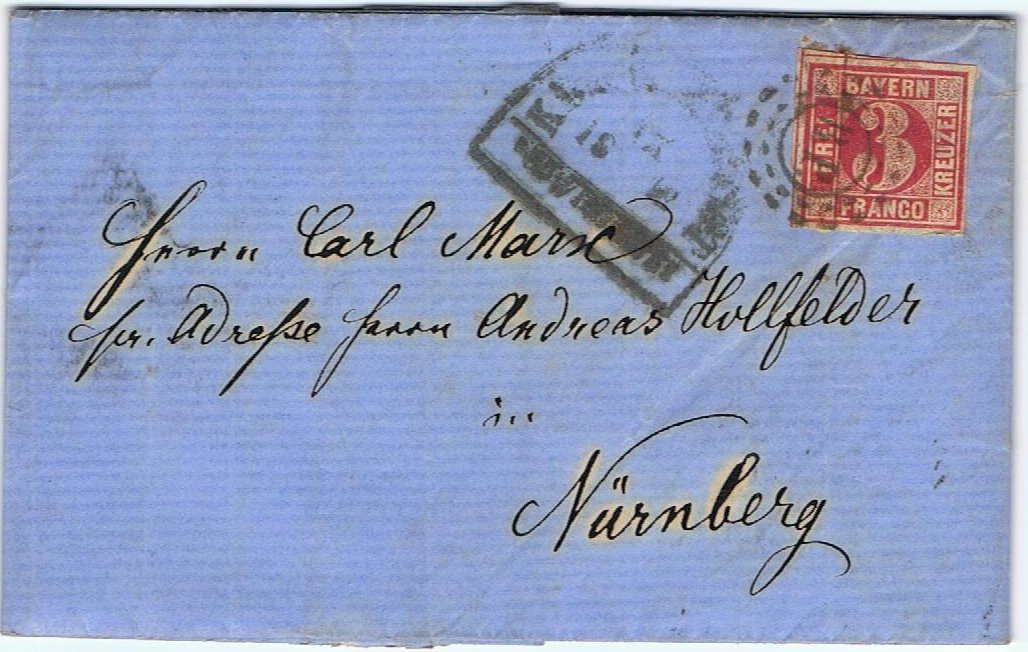 BAYERN
DREI
3
KREUZER
FRANCO
18
Herrn Carl Marx
pr. Adreſse Herrn Andreas Hollfelder
in
Nürnberg